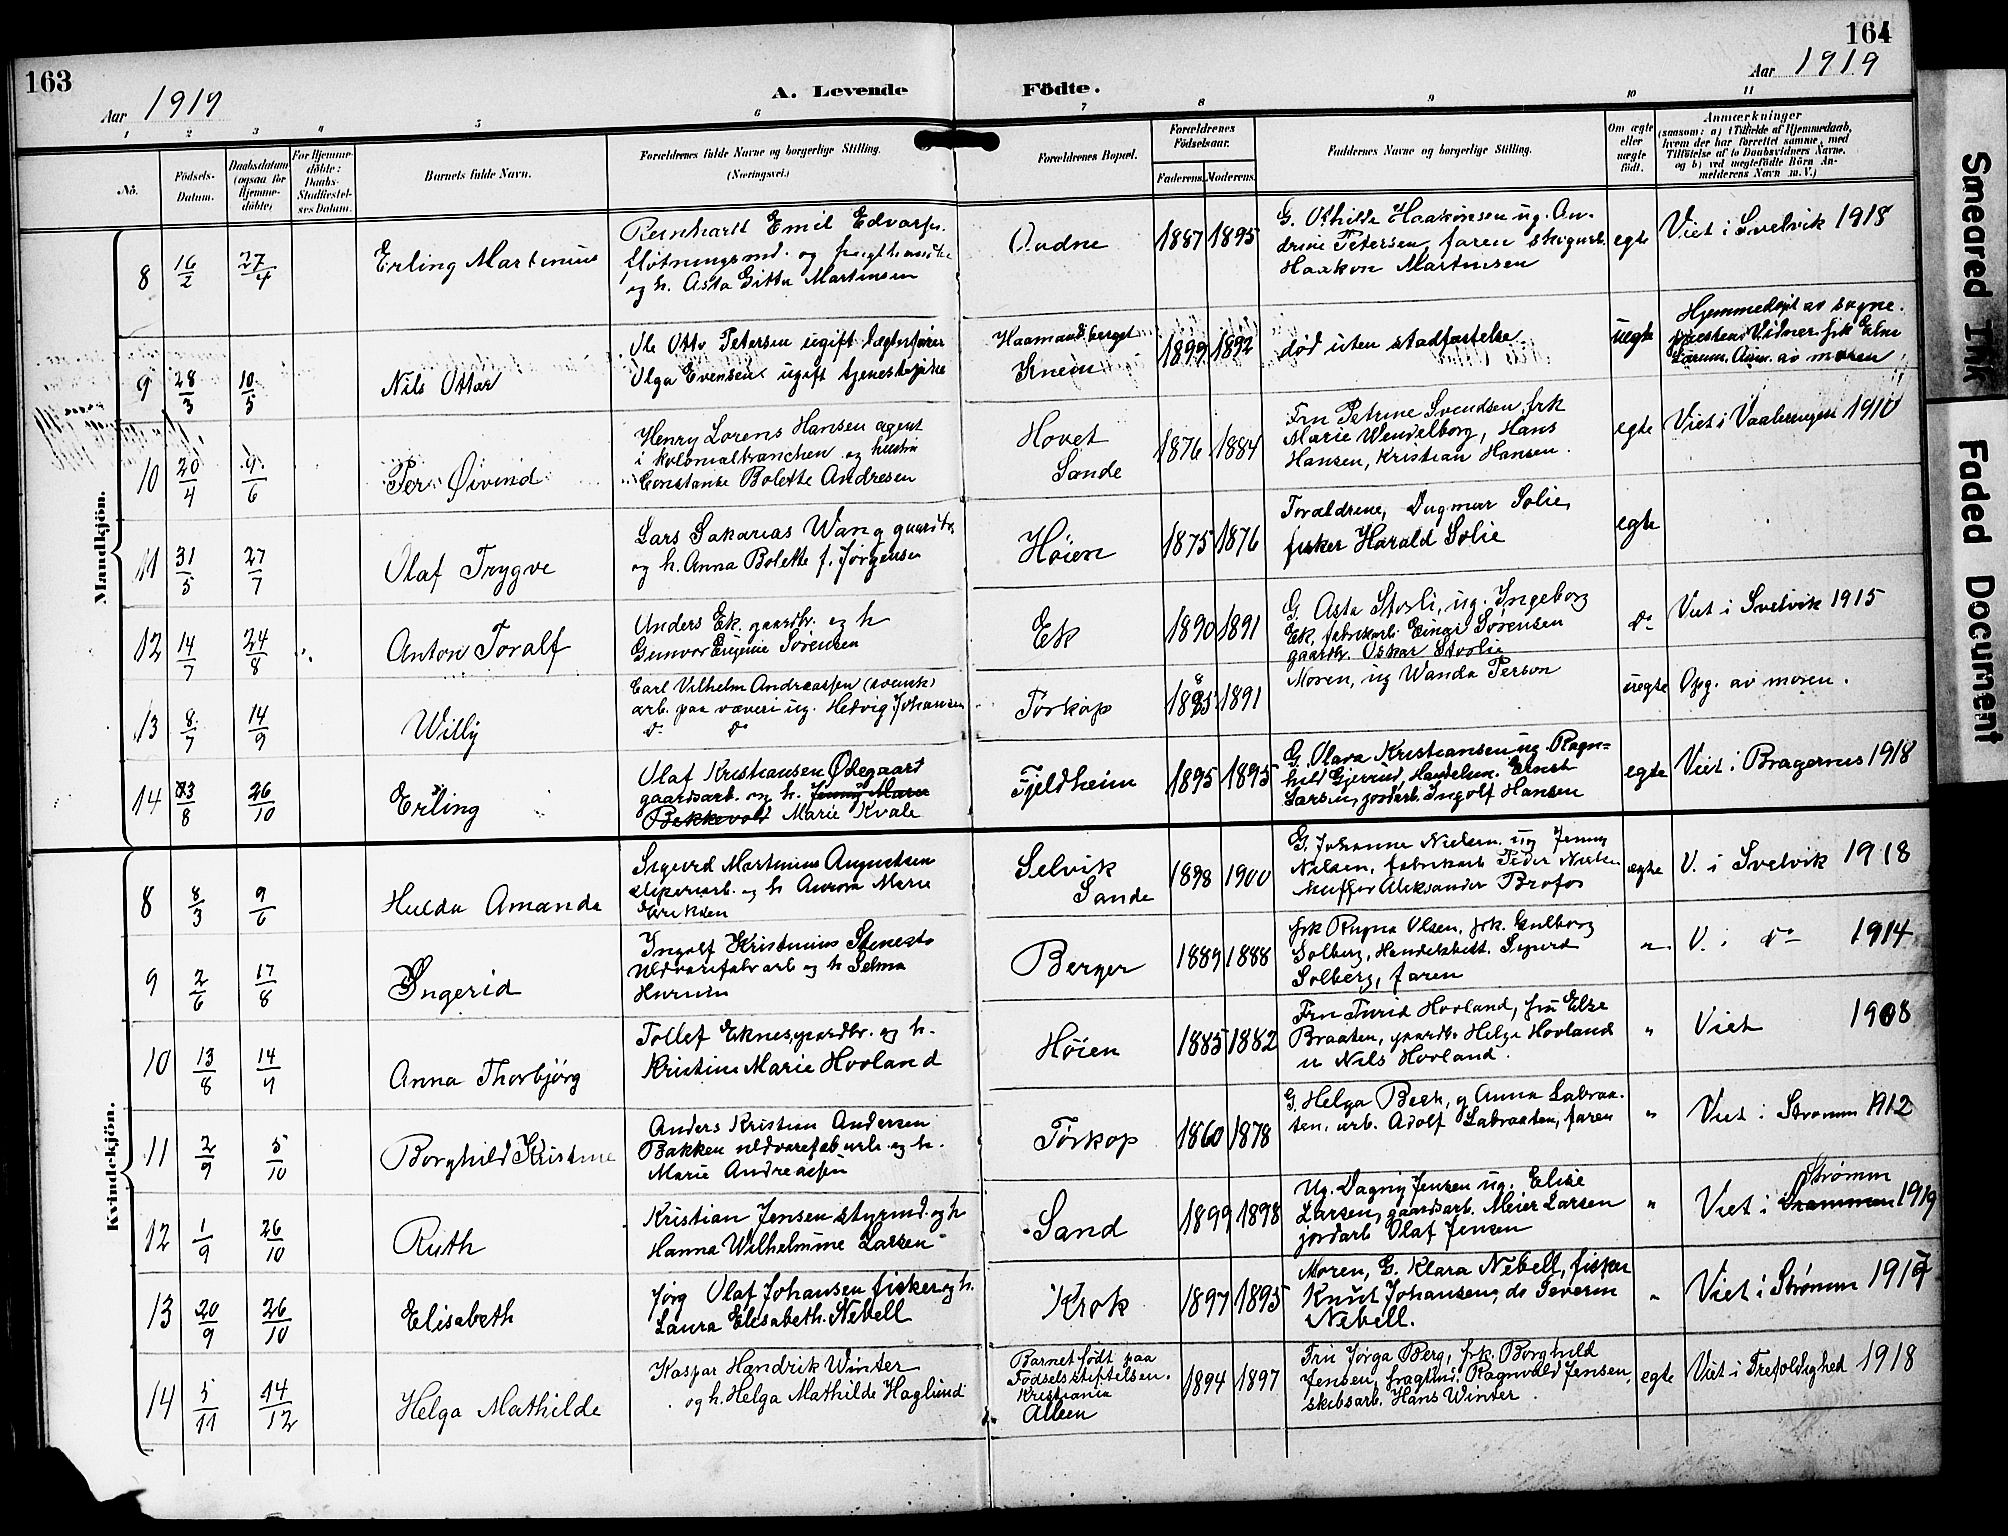 163
164
Aar 1919
A. Levende Födte.
Aar 1919
1 2 3 4 5 6 7 8 9 10 11
No.
Födsels-
Datum.
Daabsdatum
(ogsaa for
Hjemme-
döbte)
For Hjemme-
döbte:
Daabs-
Stadfæstel-
ses Datum.
Barnets fulde Navn.
Forældrenes fulde Navne og borgerlige Stilling.
(Næringsvei.)
Forældrenes Bopæl.
Forældrenes
Födselsaar.
Faderens. Moderens.
Faddernes Navne og borgerlige Stilling.
Om ægte
eller
uægte
födt.
Anmærkninger
(saasom: a) i Tilfælde af Hjemmedaab,
hvem der har forrettet samme, med
Tilföielse af to Daabsvidners Navne.
og b) ved uægtefödte Börn An-
melderens Navn m. V.)
Mandkjön.
8 16/2 27/4 Erling Martinius
Reinhardt Emil
og h. Asta Gitta Martinsen
1887 1895
G. Othilde Haakonsen ug. An-
drine Petersen, faren
Haakon Martinsen
egte
Viet i Svelvik 1918
9 28/3 10/5 Nils Ottar
Ole Otto Petersen ugift
Olga Evensen ugift tjenestepike
Knem
1899 1892
død uten stadfæstelse
uegte
Hjemmedøpt av sogne-
presten. Vidner frk Else
av moren
10 20/4 9/6 Per Øivind
Henry Lorens Hansen agent
i kolonialbranchen og hustru
Constanse Bolette Andresen
Hovet
Sande
1876 1884
Fru Petrine Svendsen, frk
Marie Wendelborg, Hans
Hansen, Kristian Hansen.
egte
Viet i Vaalerengen 1910
11 31/5 27/7 Olaf Trygve
Lars Sakarias Wang gaardbr.
og h. Anna Bolette f. Jørgensen
Høien
1875 1876
Foraldrene, Dagmar Solie,
fisker Harald Solie
egte
12 14/7 24/8 Anton Toralf
Anders Ek. gaardbr. og h
Gunvor Eugenie Sørensen
Ek
1890 1891
G. Asta Storli, ug. Ingeborg
Ek, fabrikarb. Einar Sørensen
gaardbr. Oskar Storlie
do
Viet i Svelvik 1915
13 8/7 14/9 Willy
Carl Vilhelm Andreassen (svensk)
arb. paa væveri ug. Hedvig Johansen
do do
Torkop
1885 1891
Moren, ug Wanda Person
uegte
Opg. av moren.
14 23/8 26/10 Erling
Olaf Kristiansen Ødegaard
gaardsarb. og h. Jenny Marie
Bekkevold Marie Kvale
Fjeldheim
1895 1895
G. Olava Kristiansen ug. Ragn-
hild Gjerrud, Handelsm.
Larsen, jordarb. Ingolf Hansen
egte
Viet i Bragernes 1918
Kvindekjön.
8 8/3 9/6 Hulda Amanda
Sigurd Martinius Augustsen
sliperiarb. og h Aurora Marie
Eriksen
Selvik
Sande
1898 1900
G. Johanne Nielsen ug Jenny
Nilsen, fabrikarb Peder Nielsen
Aleksander Brofos
egte
V. i Svelvik 1918
9 2/6 17/8 Ingerid
Ingolf Kristinius
uldvarefabrarb og h Selma
Berger
1889 1888
frk Ragna Olsen, frk. Gulborg
Solberg, Handelsbest. Sigurd
Solberg, faren
V. i do 1914
10 13/8 14/9 Anna Thorbjørg
Tollef Eknes, gaardbr. og h.
Kristine Marie Hovland
Høien
1885 1882
Fru Turid Hovland, fru Else
Braaten, gaardbr Helge Hovland
u Nils Hovland.
"
Viet 1908
11 2/9 5/10 Borghild Kristine
Anders Kristian Andersen
Bakken uldvarefabarb. og h.
Marie Andreassen
Torkop
1860 1878
G. Helga Bech, g Anna Labraa-
ten, arb. Adolf Labraaten, faren
"
Viet i Strømm 1912
12 1/9 26/10 Ruth
Kristian Jensen styrmd. og h
Hanna Wilhelmine Larsen
Sand
1899 1898
Ug. Dagny Jensen ug. Elise
Larsen, gaardsarb. Meier Larsen
jordarb Olaf Jensen
"
Strømm
Viet i Drammen 1919
13 20/9 26/10 Elisabeth
Jørg Olaf Johansen fisker og h.
Laura Elisabeth Nebell
Krok
1897 1895
Moren, G. Klara Nebell, fisker
Knut Johansen, do Severin
Nebell.
"
Viet i Strømm 1917
14 5/11 14/12 Helga Mathilde
Kaspar Hendrik Winter
og h. Helga Mathilde Haglund
Barnet født paa
Fødselsstiftelsen.
Kristiania
Alleen
1894 1897
Fru Jørga Berg, frk. Borghild
Jensen, Ragnvald Jensen,
skibsarb. Hans Winter.
egte
Viet i Trefoldighed 1918
Smeared Ink
Faded Document